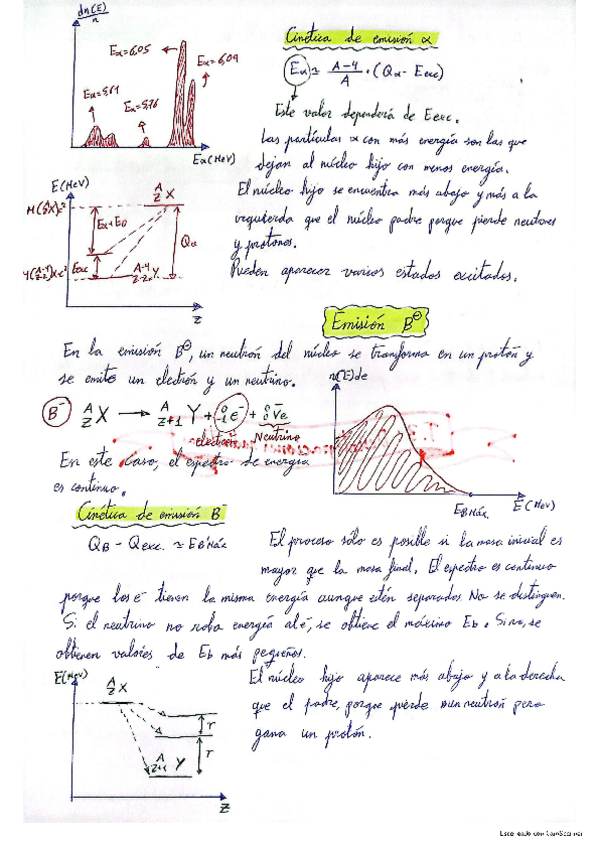 dn(E)
n
Eα=6,05
Eα=6,09
Eα=5,76
Eα(MeV)
Cinética de emisión α
Eα ≃ A-4/A · (Qα - Eexc)
Este valor dependerá de Eexc.
Las partículas α con más energía son las que
dejan al núcleo hijo con menos energía.
El núcleo hijo se encuentra más abajo y más a la
izquierda que el núcleo padre porque pierde neutrones
y protones.
Pueden aparecer varios estados excitados.
E(MeV)
A
Z X
M(A/Z X)c²
Eα+ED
Qα
Eexc
A-4
Z-2 Y
Z
Emisión B⊖
En la emisión B⊖, un neutrón del núcleo se transforma en un protón y
se emite un electrón y un neutrino.
B⁻ A/Z X → A/Z+1 Y + 0/-1 e⁻ + 0/0 Ve
electrón Neutrino
n(E)de
EBMáx.
E(MeV)
En este caso, el espectro de energía
es continuo.
Cinética de emisión B⁻
QB - Qexc. ≃ EBMáx
El proceso sólo es posible si la masa inicial es
mayor que la masa final. El espectro es continuo
porque los e⁻ tienen la misma energía aunque estén separados. No se distinguen.
Si el neutrino no roba energía al e⁻, se obtiene el máximo Eb. Si no, se
obtienen valores de Eb más pequeños.
El núcleo hijo aparece más abajo y a la derecha
que el padre, porque pierde un neutrón pero
gana un protón.
E(MeV)
A
Z X
r
r
A
Z+1 Y
Z
Escaneado con CamScanner